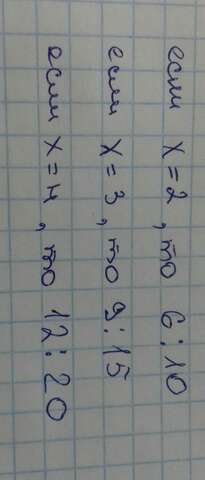 если x = 2, то 6:10
если x = 3, то 9:15
если x = 4, то 12:20